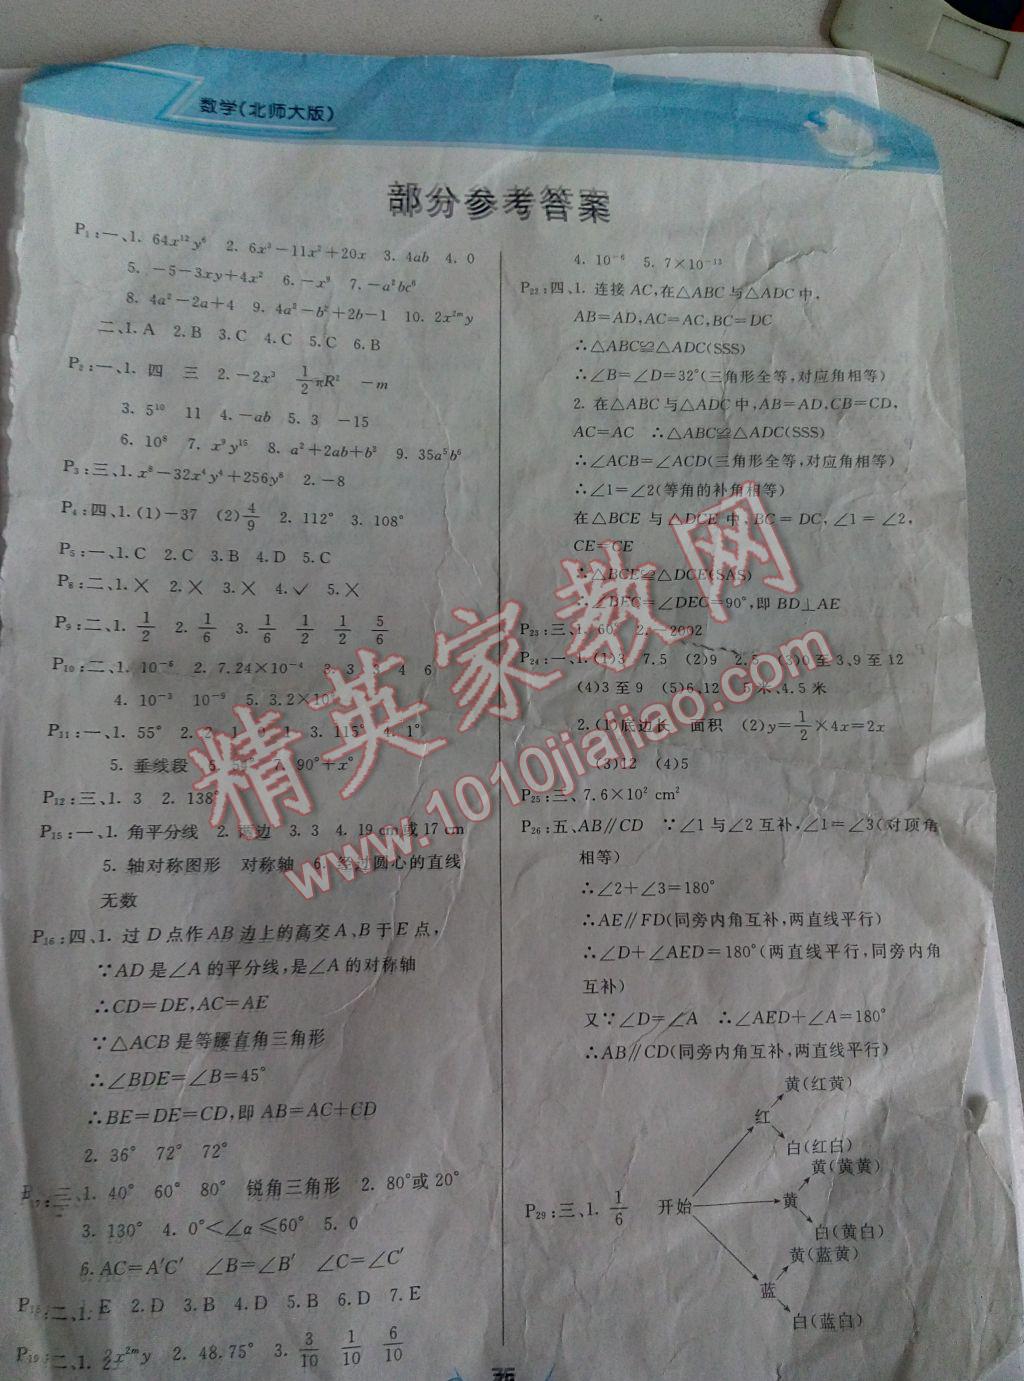 数学(北师大版)
部分参考答案
P₁:一、1. 64x¹²y⁶ 2. 6x³-11x²+20x 3. 4ab 4. 0
5. -5-3xy+4x² 6. -x⁹ 7. -a²bc⁶
8. 4a²-2a+4 9. 4a²-b²+2b-1 10. 2x²ᵐy
二、1. A 2. B 3. C 4. C 5. C 6. B
P₂:一、1. 四 三 2. -2x³ 1/2πR² -m
3. 5¹⁰ 11 4. -ab 5. 3 -15
6. 10⁸ 7. x⁹y¹⁵ 8. a²+2ab+b² 9. 35a⁵b⁶
P₃:三、1. x⁸-32x⁴y⁴+256y⁸ 2. -8
P₄:四、1. (1)-37 (2)4/9 2. 112° 3. 108°
P₅:一、1. C 2. C 3. B 4. D 5. C
P₈:二、1. × 2. × 3. × 4. ✓ 5. ×
P₉:二、1. 1/2 2. 1/6 3. 1/6 1/2 1/2 5/6
P₁₀:二、1. 10⁻⁶ 2. 7.24×10⁻⁴ 3. 3 3 4 6
4. 10⁻³ 10⁻⁹ 5. 3.2×10
P₁₁:一、1. 55° 2. 2 1 0 1 3. 115° 4. 1°
5. 垂线段 7. 90°+x°
P₁₂:三、1. 3 2. 138°
P₁₅:一、1. 角平分线 2. 两边 3. 3 4. 19 cm或17 cm
5. 轴对称图形 对称轴 6. 经过圆心的直线
无数
P₁₆:四、1. 过D点作AB边上的高交A、B于E点,
∵AD是∠A的平分线,是∠A的对称轴
∴CD=DE,AC=AE
∵△ACB是等腰直角三角形
∴∠BDE=∠B=45°
∴BE=DE=CD,即AB=AC+CD
2. 36° 72° 72°
三、1. 40° 60° 80° 锐角三角形 2. 80°或20°
3. 130° 4. 0°<∠α≤60° 5. 0
6. AC=A′C′ ∠B=∠B′ ∠C=∠C′
P₁₈:二、1. E 2. D 3. B 4. D 5. B 6. D 7. E
P₁₉:二、1. x²ᵐy 2. 48.75° 3. 3/10 1/10 6/10
4. 10⁻⁶ 5. 7×10⁻¹³
P₂₂:四、1. 连接AC,在△ABC与△ADC中,
AB=AD,AC=AC,BC=DC
∴△ABC≌△ADC(SSS)
∴∠B=∠D=32°(三角形全等,对应角相等)
2. 在△ABC与△ADC中,AB=AD,CB=CD,
AC=AC ∴△ABC≌△ADC(SSS)
∴∠ACB=∠ACD(三角形全等,对应角相等)
∴∠1=∠2(等角的补角相等)
在△BCE与△DCE中,BC=DC,∠1=∠2,
CE=CE
∴△BCE≌△DCE(SAS)
∴∠BEC=∠DEC=90°,即BD⊥AE
P₂₃:三、1. 60° 2. -2002
P₂₄:一、1. (1)3 7.5 (2)9 2.5 (3)0至3、9至12
(4)3至9 (5)6、12 5米、4.5米
2. (1)底边长 面积 (2)y=1/2×4x=2x
(3)12 (4)5
P₂₅:三、7.6×10² cm²
P₂₆:五、AB∥CD ∵∠1与∠2互补,∠1=∠3(对顶角
相等)
∴∠2+∠3=180°
∴AE∥FD(同旁内角互补,两直线平行)
∴∠D+∠AED=180°(两直线平行,同旁内角
互补)
又∵∠D=∠A ∴∠AED+∠A=180°
∴AB∥CD(同旁内角互补,两直线平行)
P₂₉:三、1. 1/6 开始
红
黄(红黄)
白(红白)
黄
黄(黄黄)
白(黄白)
蓝
黄(蓝黄)
白(蓝白)
精英家教网
www.1010jiajiao.com